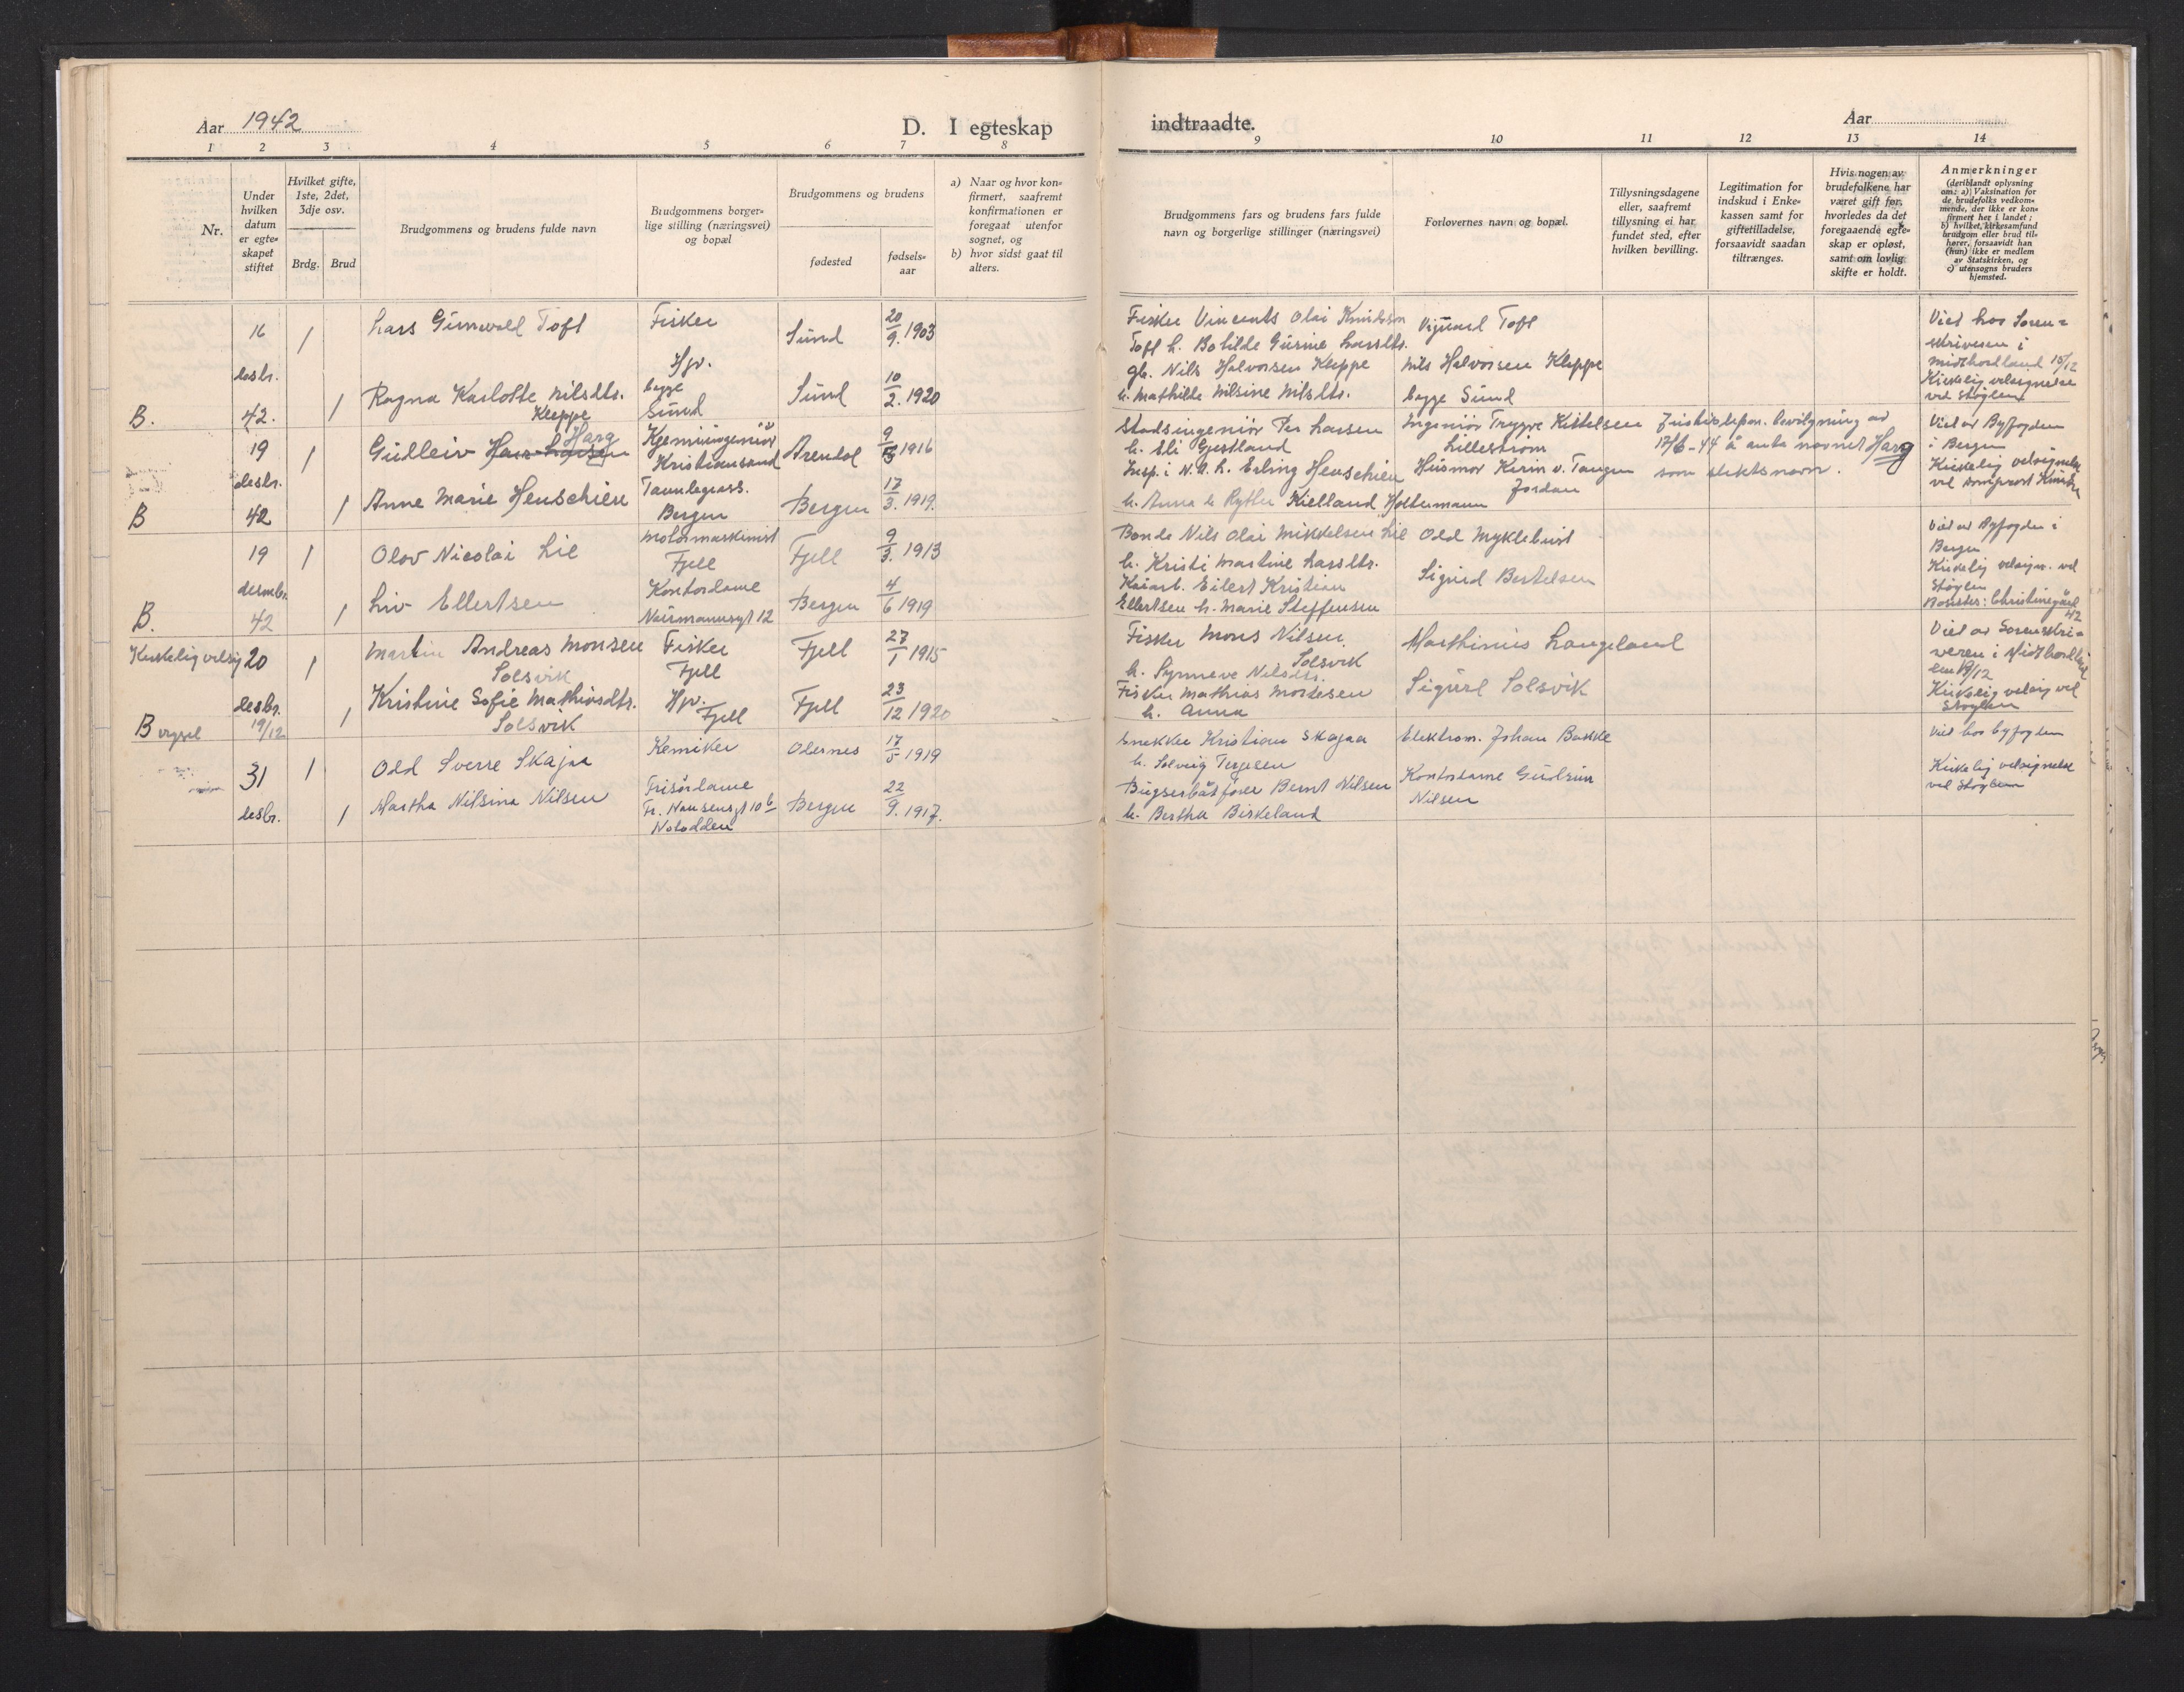 Aar 1942
D. I egteskap
indtraadte.
Aar
1 2 3 4 5 6 7 8
9 10 11 12 13 14
Nr.
Under hvilken datum er egteskapet stiftet
Hvilket gifte, 1ste, 2det, 3dje osv.
Brdg. Brud
Brudgommens og brudens fulde navn
Brudgommens borgerlige stilling (næringsvei) og bopæl
Brudgommens og brudens
fødested
fødselsaar
a) Naar og hvor konfirmert, saafremt konfirmationen er foregaat utenfor sognet, og
b) hvor sidst gaat til alters.
Brudgommens fars og brudens fars fulde navn og borgerlige stillinger (næringsvei)
Forlovernes navn og bopæl.
Tillysningsdagene eller, saafremt tillysning ei har fundet sted, efter hvilken bevilling.
Legitimation for indskud i Enkekassen samt for giftetilladelse, forsaavidt saadan tiltrænges.
Hvis nogen av brudefolkene har været gift før, hvorledes da det foregaaende egteskap er opløst, samt om lovlig skifte er holdt.
Anmerkninger
(deriblandt oplysning om: a) Vaksination for de brudefolks vedkommende, der ikke er konfirmert her i landet; b) hvilket kirkesamfund brudgom eller brud tilhører, forsaavidt han (hun) ikke er medlem av Statskirken, og c) utensogns bruders hjemsted.
B.
16
desbr.
42.
1
1
Lars Gunnvald Toft
Ragna Karlotte Nilsdtr.
Kleppe
Fisker
Hjv.
begge
Sund
Sund
Sund
20/9. 1903
10/2. 1920
Fisker Vincents Olai Knudsen
Toft h. Botilde Gurine Larsdtr.
gb. Nils Halvorsen Kleppe
h. Mathilde Nilsine Nilsdtr.
Vignard Toft
Nils Halvorsen Kleppe
begge Sund
Viet hos Soren=
skriveren i
Midthordland 15/12
Kirkelig velsignelse
ved Støylen
B
19
desbr.
42
1
1
Gudleiv Harg
Anne Marie Henschien
Kjemiingeniör
Kristiansand
Tannlegeass.
Bergen
Arendal
Bergen
9/ 1916
17/3. 1919.
Stadsingeniör Per Larsen
h. Eli Gjestland
Insp. i N.A.h. Erling Henschien
h. Anna de Rytter Kielland Holtermann
Ingeniör Trygve Kittelsen
Lilleström
Husmor Karin v. Tangen
Jordan
Justisdepar. bevilgning av
17/6-44 å anta navnet Harg
som slektsnavn.
Viet av Byfogden
i Bergen
Kirkelig velsignelse
ved
B.
19
desmbr.
42
1
1
Olav Nicolai Lie
Liv Ellertsen
Motormaskinist
Fjell
Kontordame
Nürmannsgt 12
Fjell
Bergen
9/3. 1913
4/6 1919
Bonde Nils Olai Mikkelsen Lie
h. Kristi Martine Larsdtr.
Kaiarb. Eilert Kristian
Ellertsen h. Marie Steffensen
Odd Myklebust
Sigurd Bertelsen
Viet av Byfogden i
Bergen
Kirkelig velsign. ved
Støylen
Bosittes: Christinegård
42
Kirkelig velsig 20
desbr.
19/12
1
1
Martin Andreas Monsen
Solsvik
Kristine Sofie Mathiasdtr.
Solsvik
Fisker
Fjell
Hjv.
Fjell
Fjell
Fjell
27/1 1915
23/12 1920
Fisker Mons Nilsen
Solsvik
h. Synneve Nilsdtr.
Fisker Mathias Mortesen
h. Anna
Marthinius Langeland
Sigurd Solsvik
Viet av Sorenskri=
veren i Midthordland
den 19/12
Kirkelig velsig ved
Støylen
31
desbr.
1
1
Odd Sverre Skajaa
Martha Nilsina Nilsen
Kemiker
Frisördame
Fr. Nansensgt 10 b
Notodden
Odernes
Bergen
17/5 1919
22/9. 1917.
Snekker Kristian Skajaa
h. Solveig Terjesen
Bugserbåtförer Bernt Nilsen
h. Bertha Birkeland
Elektrom. Johan Bakke
Kontordame Gudrun
Nilsen
Viet hos byfogden
Kirkelig velsignelse
ved Støylen